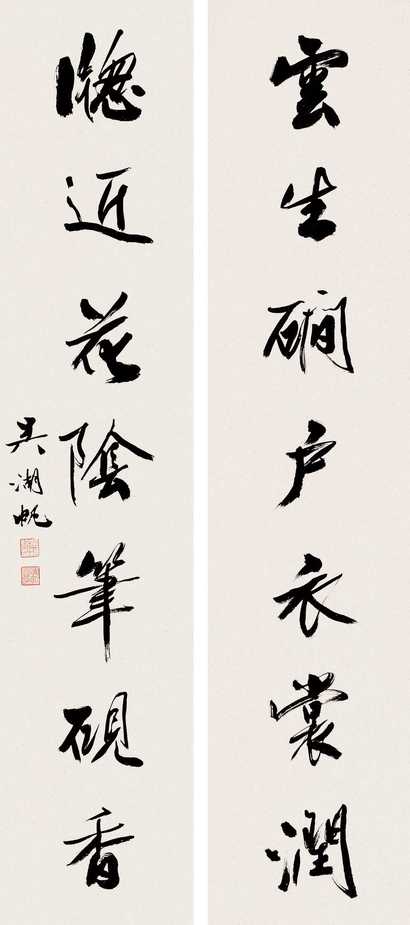 雲生磵户衣裳潤
牕近花陰筆硯香
吳湖帆